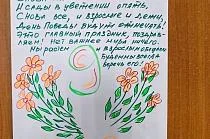 И сады в цветении опять,
Снова все, и взрослые и дети,
День Победы будут отмечать!
Это главный праздник, поздрав-
ляем! Нет важнее мира ничего.
Мы растём и взрослым обещаем
Будем мы всегда
беречь его!
9